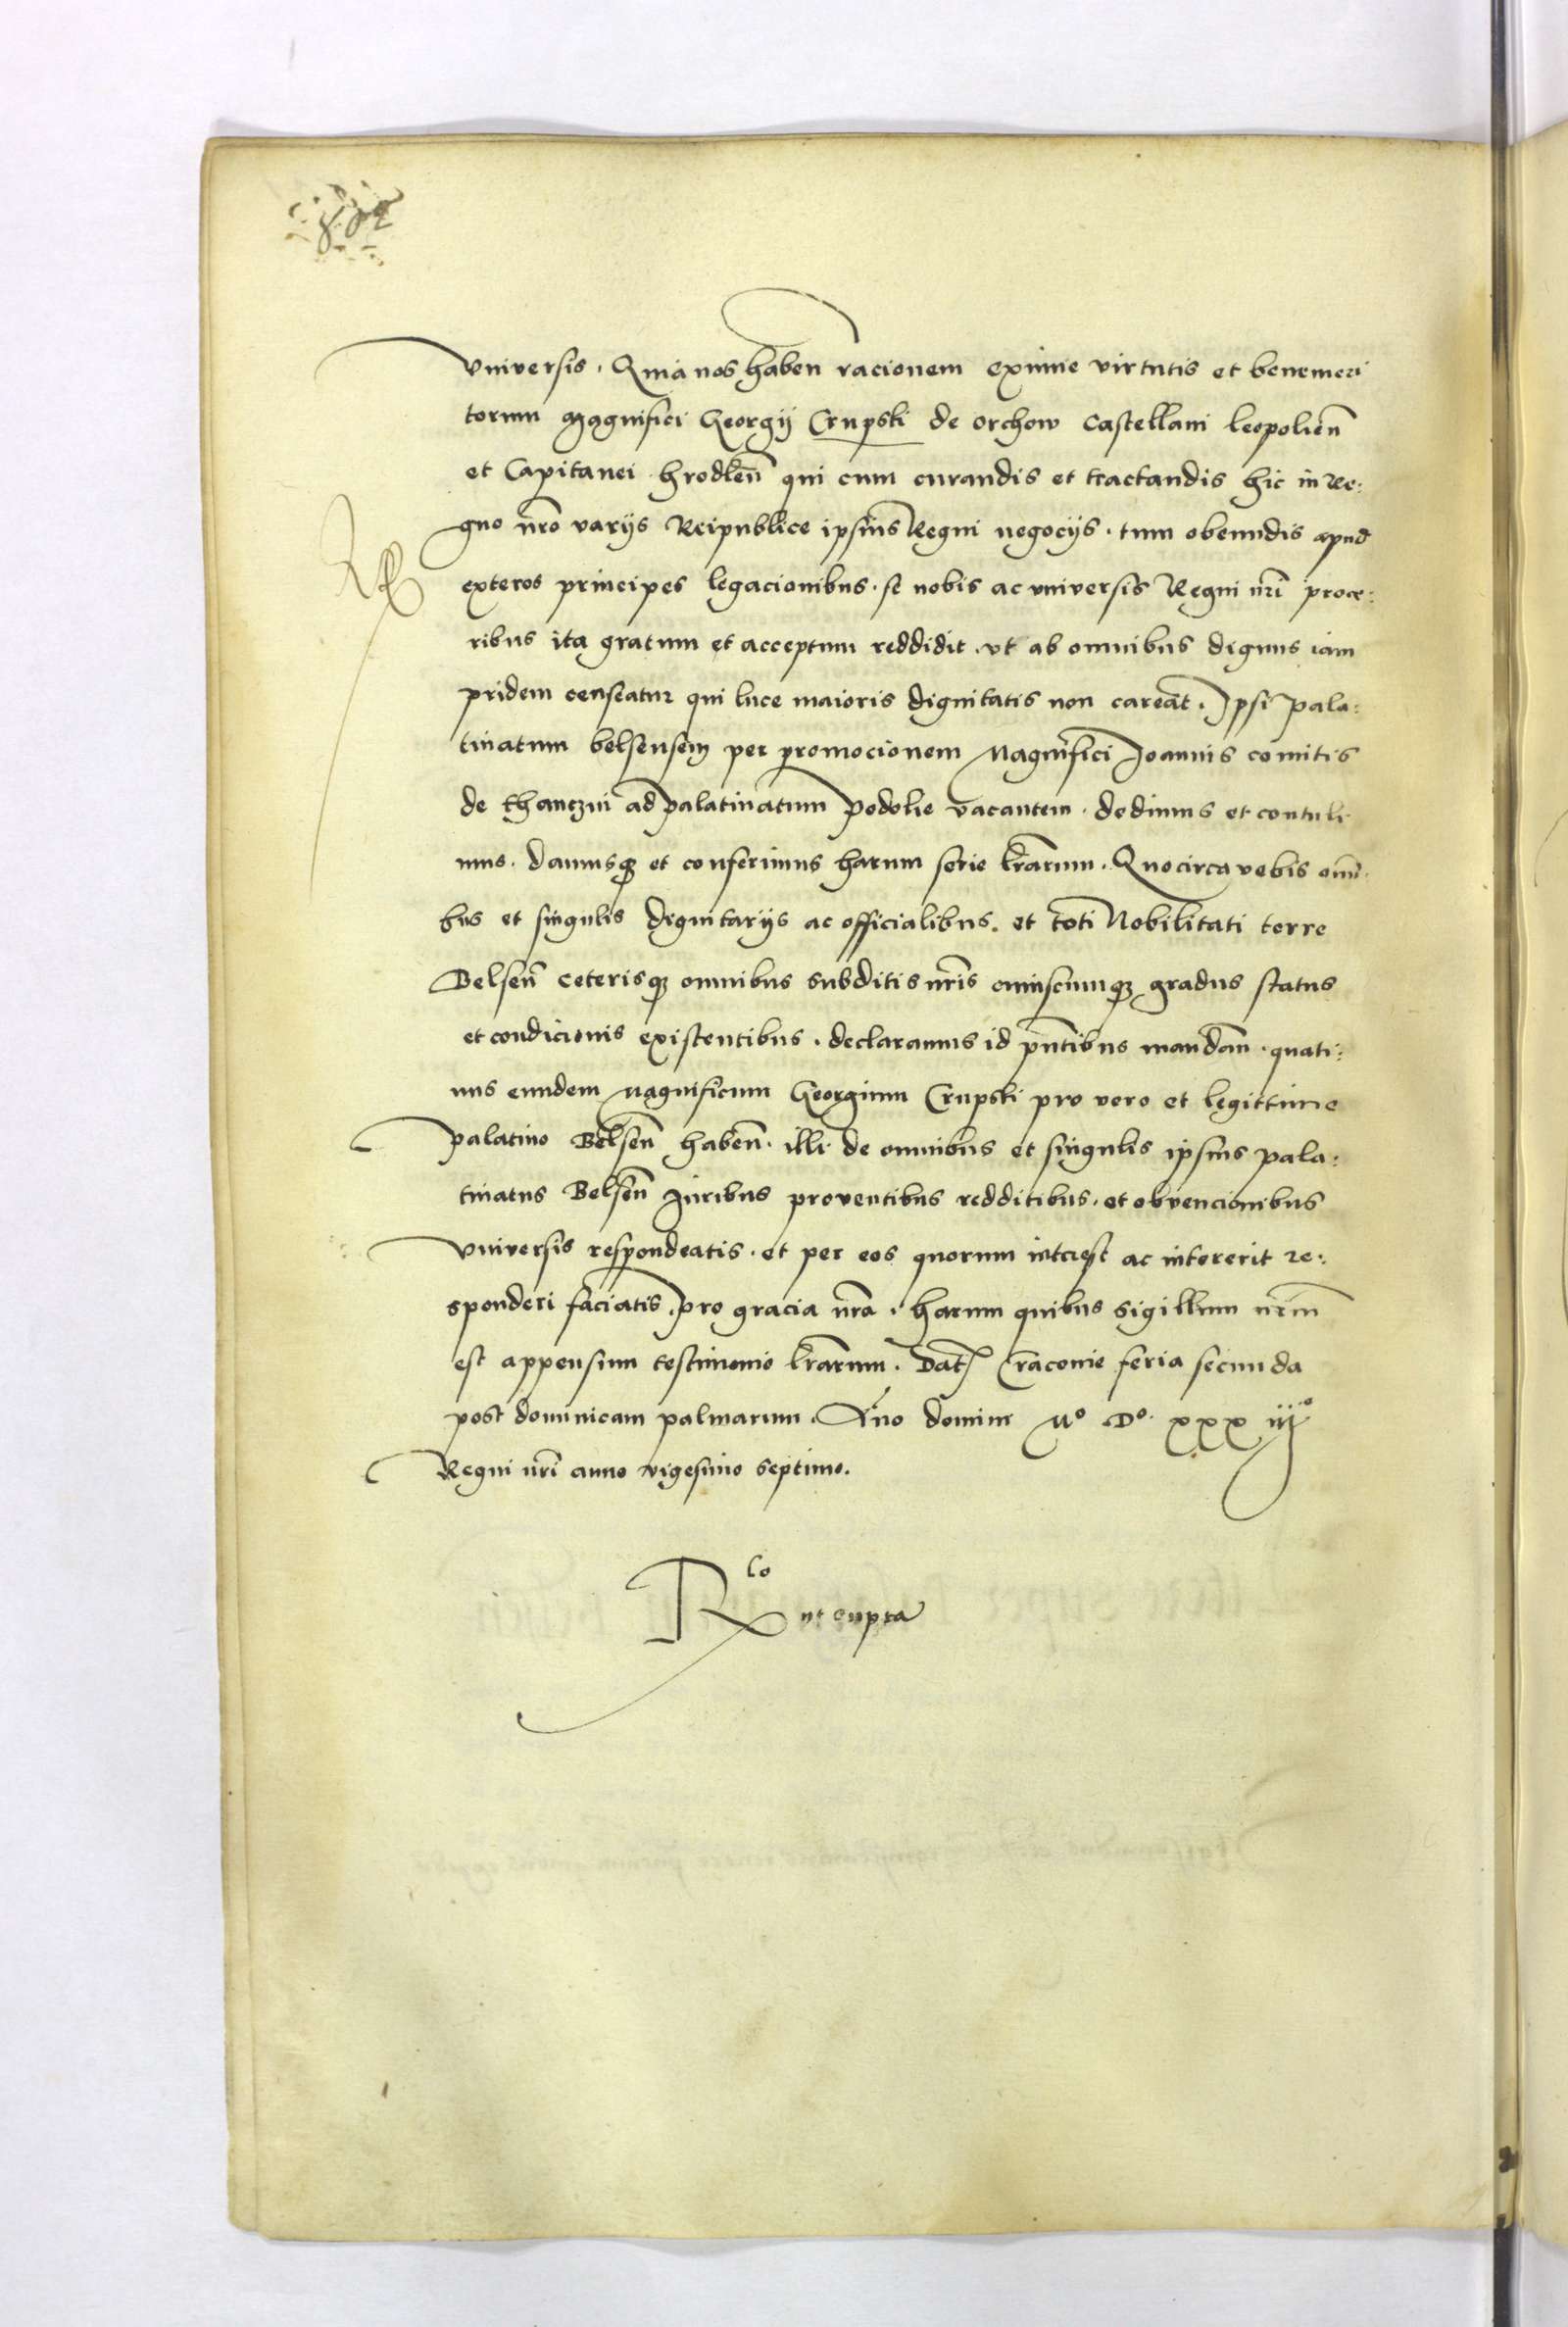 802
Universis. Quia nos haben racionem eximie virtutis et benemeri
torum Magnifici Georgij Crupski de orchow castellani leopolien
et Capitanei hrodlen qui cum curandis et tractandis hic in Re:
gno nro varijs Reipublice ipsius Regni negocijs. tum obeundis apud
exteros principes legacionibus. se nobis ac universis Regni nri proce:
ribus ita gratum et acceptum reddidit. ut ab omnibus dignus iam
pridem censeatur qui luce maioris dignitatis non careat. Ipsi pala:
tinatum belsensem per promocionem Magnifici Joannis comitis
de thanczin ad palatinatum podolie vacantem. dedimus et contuli
mus. damusque et conferimus harum serie lrarum. Quocirca vobis omni
bus et singulis dignitarijs ac officialibus. et toti Nobilitati terre
Belsen ceterisque omnibus subditis nris cuiuscumque gradus status
et condicionis existentibus. declaramus id pntibus mandan. quati:
nus eundem Magnificum Georgium Crupski pro vero et legittimo
palatino Belsen haben. illi de omnibus et singulis ipsius pala:
tinatus Belsen Juribus proventibus redditibus. et obvencionibus
Universis respondeatis. et per eos quorum interest ac intererit re:
sponderi faciatis. pro gracia nra. harum quibus sigillum nrm
est appensum testimonio lrarum. Dat Cracovie feria secunda
post dominicam palmarum. Ano domini Mo Do xxx iijo
Regni nri anno vigesimo septimo.
Rlo ut supra